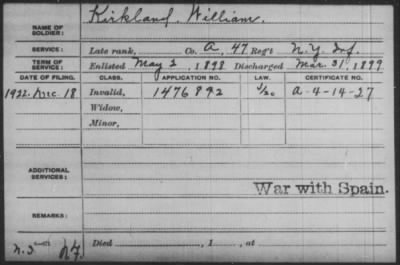 NAME OF SOLDIER: Kirkland, William.
SERVICE: Late rank, Co. A, 47 Reg't N.Y. Inf.
TERM OF SERVICE: Enlisted May 2, 1898 Discharged Mar. 31, 1899
DATE OF FILING. CLASS. APPLICATION NO. LAW. CERTIFICATE NO.
1922. Dec. 18 Invalid, 1476892 A-4-14-27
Widow,
Minor,
ADDITIONAL SERVICES:
War with Spain.
REMARKS:
Died , 1 , at